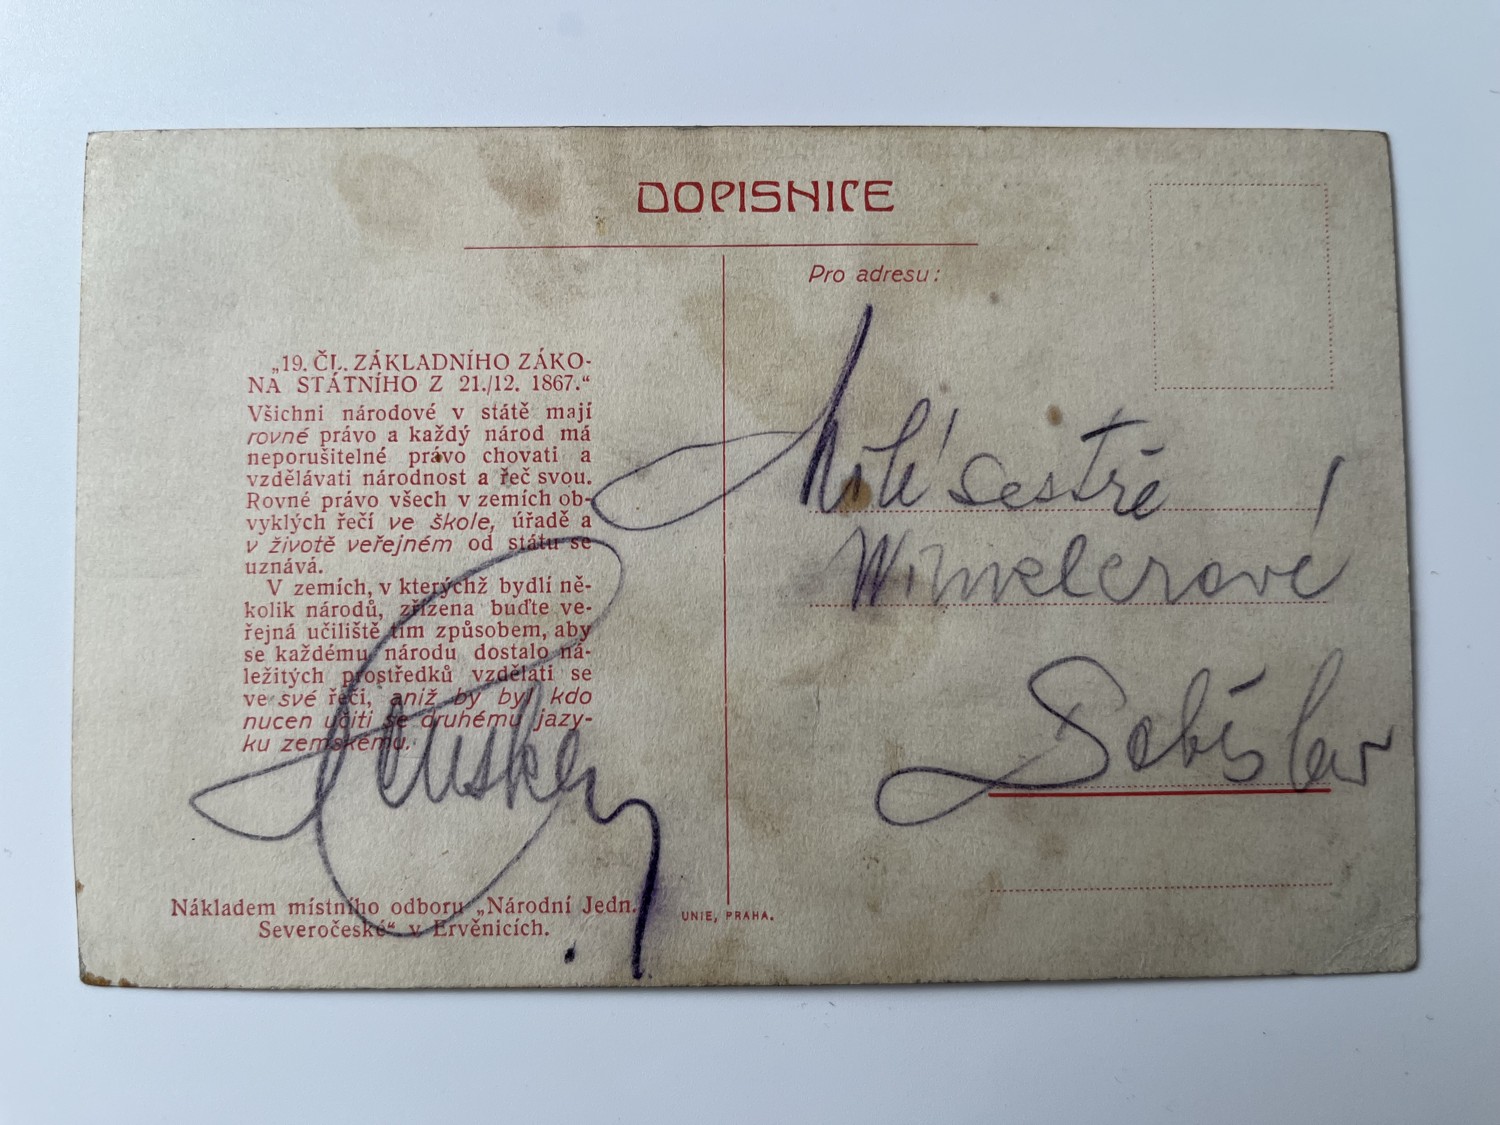 DOPISNICE
Pro adresu:
„19. ČL. ZÁKLADNÍHO ZÁKO-
NA STÁTNÍHO Z 21./12. 1867.“
Všichni národové v státě mají
rovné právo a každý národ má
neporušitelné právo chovati a
vzdělávati národnost a řeč svou.
Rovné právo všech v zemích ob-
vyklých řečí ve škole, úřadě a
v životě veřejném od státu se
uznává.
V zemích, v kterýchž bydlí ně-
kolik národů, zřízena buďte ve-
řejná učiliště tím způsobem, aby
se každému národu dostalo ná-
ležitých prostředků vzdělati se
ve své řeči, aniž by byl kdo
nucen učiti se druhému jazy-
ku zemskému.
Nákladem místního odboru „Národní Jedn.
Severočeské“ v Ervěnicích.
UNIE, PRAHA.
Milé sestře
Wimmelerové
Soběslav